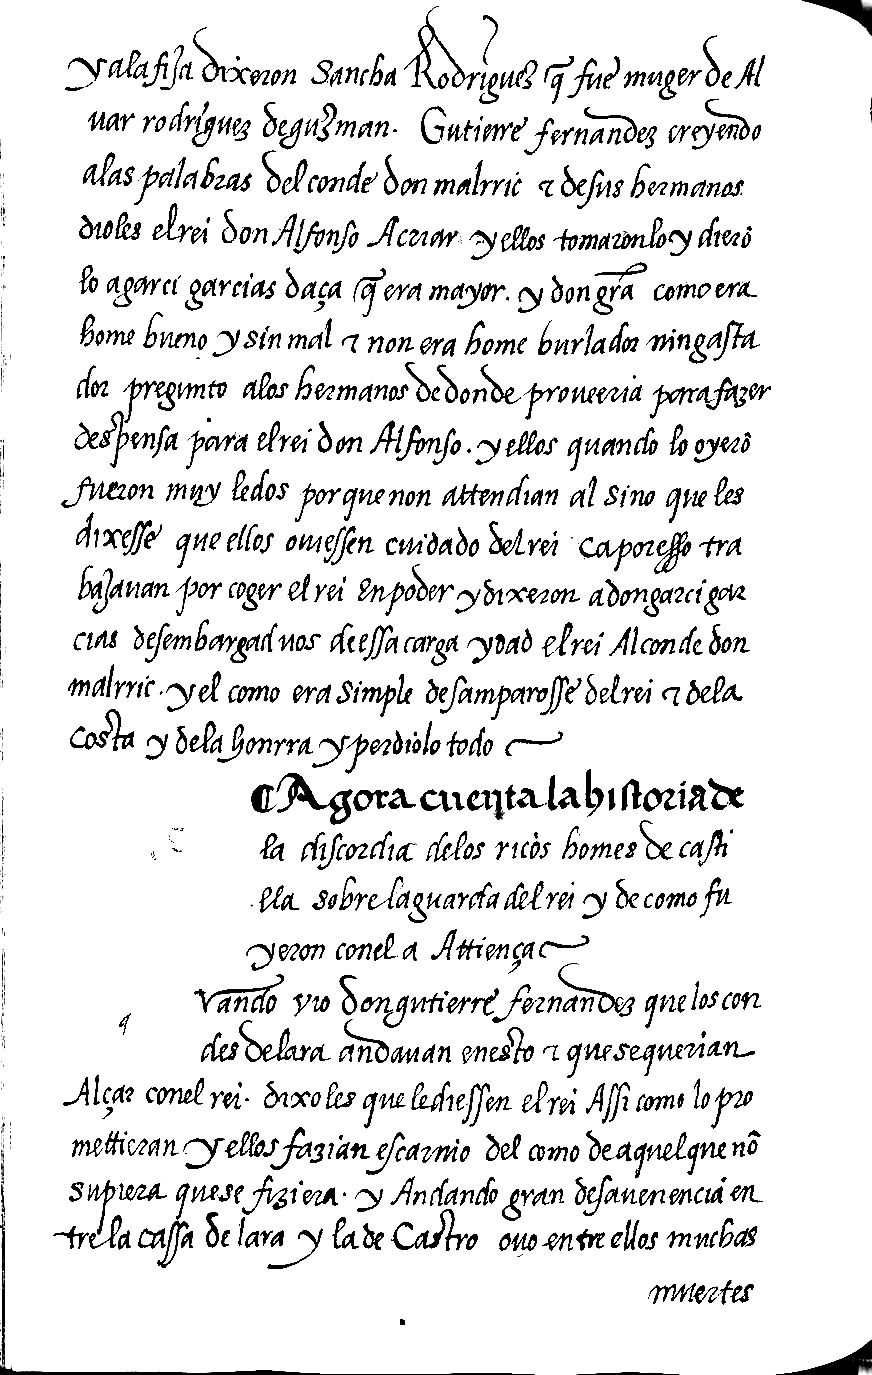 y ala fija dixeron Sancha Rodriguez q̃ fue muger de Al
uar rodriguez de guzman. Gutierre fernandez creyendo
alas palabras del conde don malrric ⁊ de sus hermanos
dioles el rei don Alfonso Acriar y ellos tomaronlo y dierõ
lo agarci garcias daça q̃ era mayor. y don gr̃a como era
home bueno y sin mal ⁊ non era home burlador nin gasta
dor pregunto alos hermanos de donde proueeria para fazer
despensa para el rei don Alfonso. y ellos quando lo oyerõ
fueron muy ledos por que non attendian al sino que les
dixesse que ellos ouiessen cuidado del rei Ca por esso tra
bajauan por coger el rei En poder y dixeron a don garci gar
cias desembargad uos de essa carga y dad el rei Al conde don
malrric. y el como era simple desamparosse del rei ⁊ dela
costa y dela honrra y perdiolo todo
¶ Agora cuenta la historia de
la discordia delos ricos homes de casti
ella sobre la guarda del rei y de como fu
yeron con el a Attiença
Vando vio don gutierre fernandez que los con
q
des de lara andauan en esto ⁊ que se querian
Alçar con el rei. dixoles que le diessen el rei Assi como lo pro
mettieran y ellos fazian escarnio del como de aquel que nõ
supiera que se fiziera. y Andando gran desauenencia en
tre la cassa de lara y la de Castro ouo entre ellos muchas
muertes